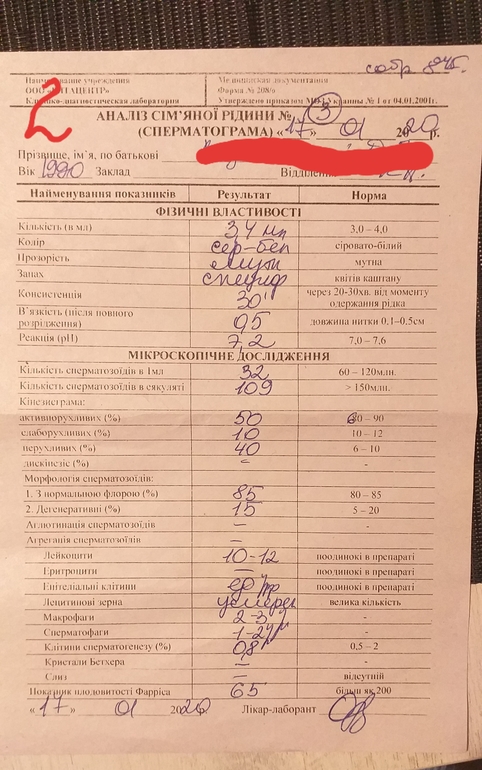 собр 8 45.
Найменування учреждения Медицинская документация
ООО « » Форма № 208/о
Клинико-диагностическая лаборатория Утверждено приказом МОЗ Украины № 1 от 04.01.2001г.
2
АНАЛІЗ СІМ'ЯНОЇ РІДИНИ № 3
(СПЕРМАТОГРАМА) «17» 01 2020р.
Прізвище, ім'я, по батькові
Вік 1990 Заклад Відділення
Найменування показників Результат Норма
ФІЗИЧНІ ВЛАСТИВОСТІ
Кількість (в мл) 3,4 мл 3,0 – 4,0
Колір сер-бел сіровато-білий
Прозорість мутн мутна
Запах специф квітів каштану
Консистенция 30' через 20-30хв. від моменту одержання рідка
В'язкість (після повного розрідження) 0,5 довжина нитки 0.1–0.5см
Реакция (рН) 7,2 7,0 – 7,6
МІКРОСКОПІЧНЕ ДОСЛІДЖЕННЯ
Кількість сперматозоїдів в 1мл 32 60 – 120млн.
Кількість сперматозоїдів в еякуляті 109 > 150млн.
Кінезиграма:
активнорухливих (%) 50 60 – 90
слаборухливих (%) 10 10 – 12
нерухливих (%) 40 6 – 10
дискінезіс (%) – -
Морфологія сперматозоїдів:
1. З нормальною флорою (%) 85 80 – 85
2. Дегенеративні (%) 15 5 – 20
Аглютинація сперматозоїдів – -
Агрегация сперматозоїдів –
Лейкоцити 10-12 поодинокі в препараті
Еритроцити – поодинокі в препараті
Епітеліальні клітини ед поодинокі в препараті
Лецитинові зерна умерен велика кількість
Макрофаги 2-3 -
Сперматофаги 1-2 -
Клітини сперматогенезу (%) 0,8 0,5 – 2
Кристали Бетхера – -
Слиз – відсутній
Показник плодовитості Фарріса 65 більш як 200
«17» 01 2020р. Лікар-лаборант